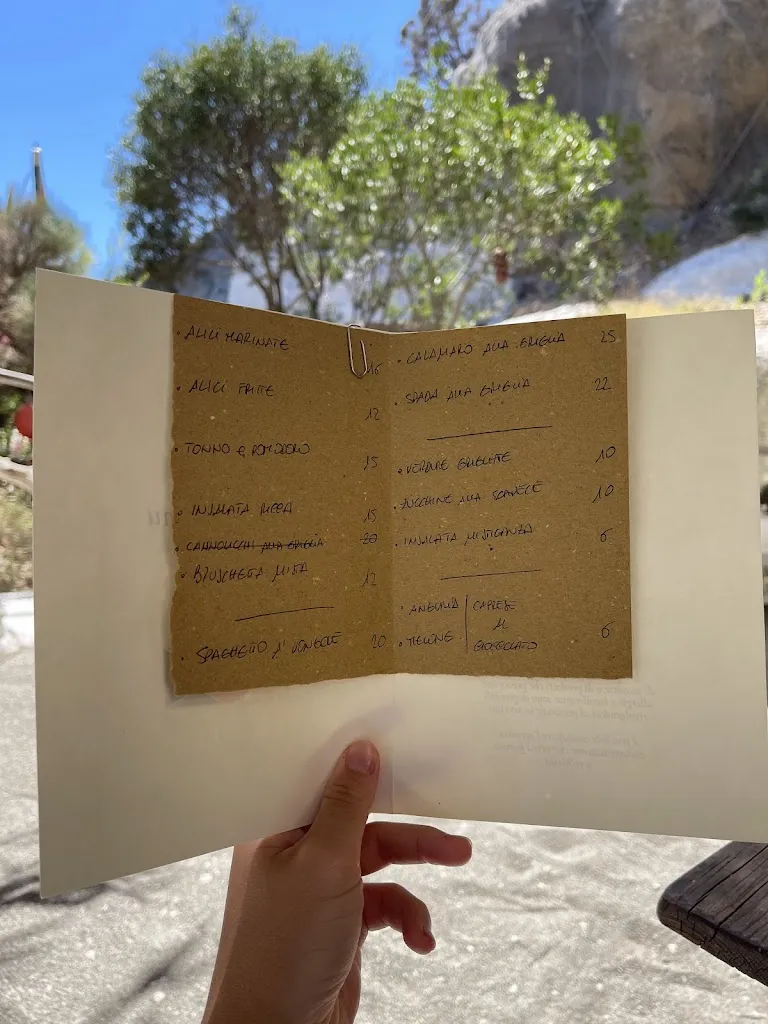 • ALICI MARINATE 16
• ALICI FRITTE 12
• TONNO E POMODORO 15
• INSALATA RICCA 15
• CANNOLICCHI ALLA GRIGLIA 20
• BRUSCHETTA MISTA 12
• SPAGHETTO A' VONGOLE 20
• CALAMARO ALLA GRIGLIA 25
• SPADA ALLA GRIGLIA 22
• VERDURE GRIGLIATE 10
• ZUCCHINE ALLA SCAPECE 10
• INSALATA MISTICANZA 6
• ANGURIA | CAPRESE
• MELONE | AL
CIOCCOLATO 6